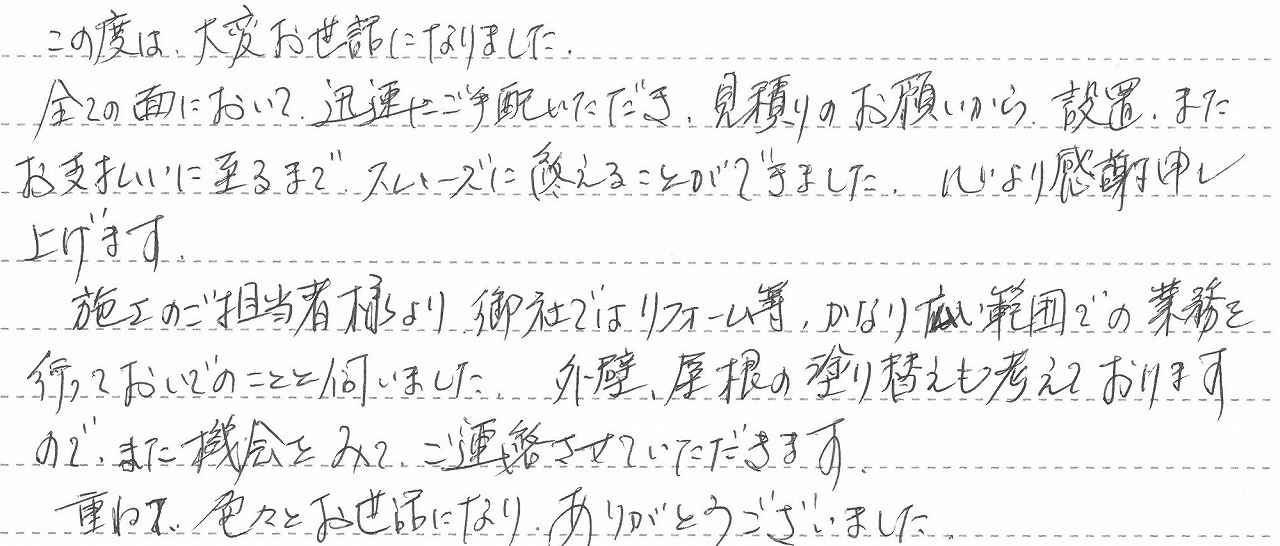 この度は、大変お世話になりました。
全ての面において、迅速なご手配いただき、見積りのお願いから、設置、また
お支払いに至るまで、スムーズに終えることができました。心より感謝申し
上げます。
施工のご担当者様より、御社ではリフォーム等、かなり広い範囲での業務を
行っておいでのことと伺いました。外壁、屋根の塗り替えも考えております
ので、また機会をみて、ご連絡させていただきます。
重ねて、色々とお世話になり、ありがとうございました。